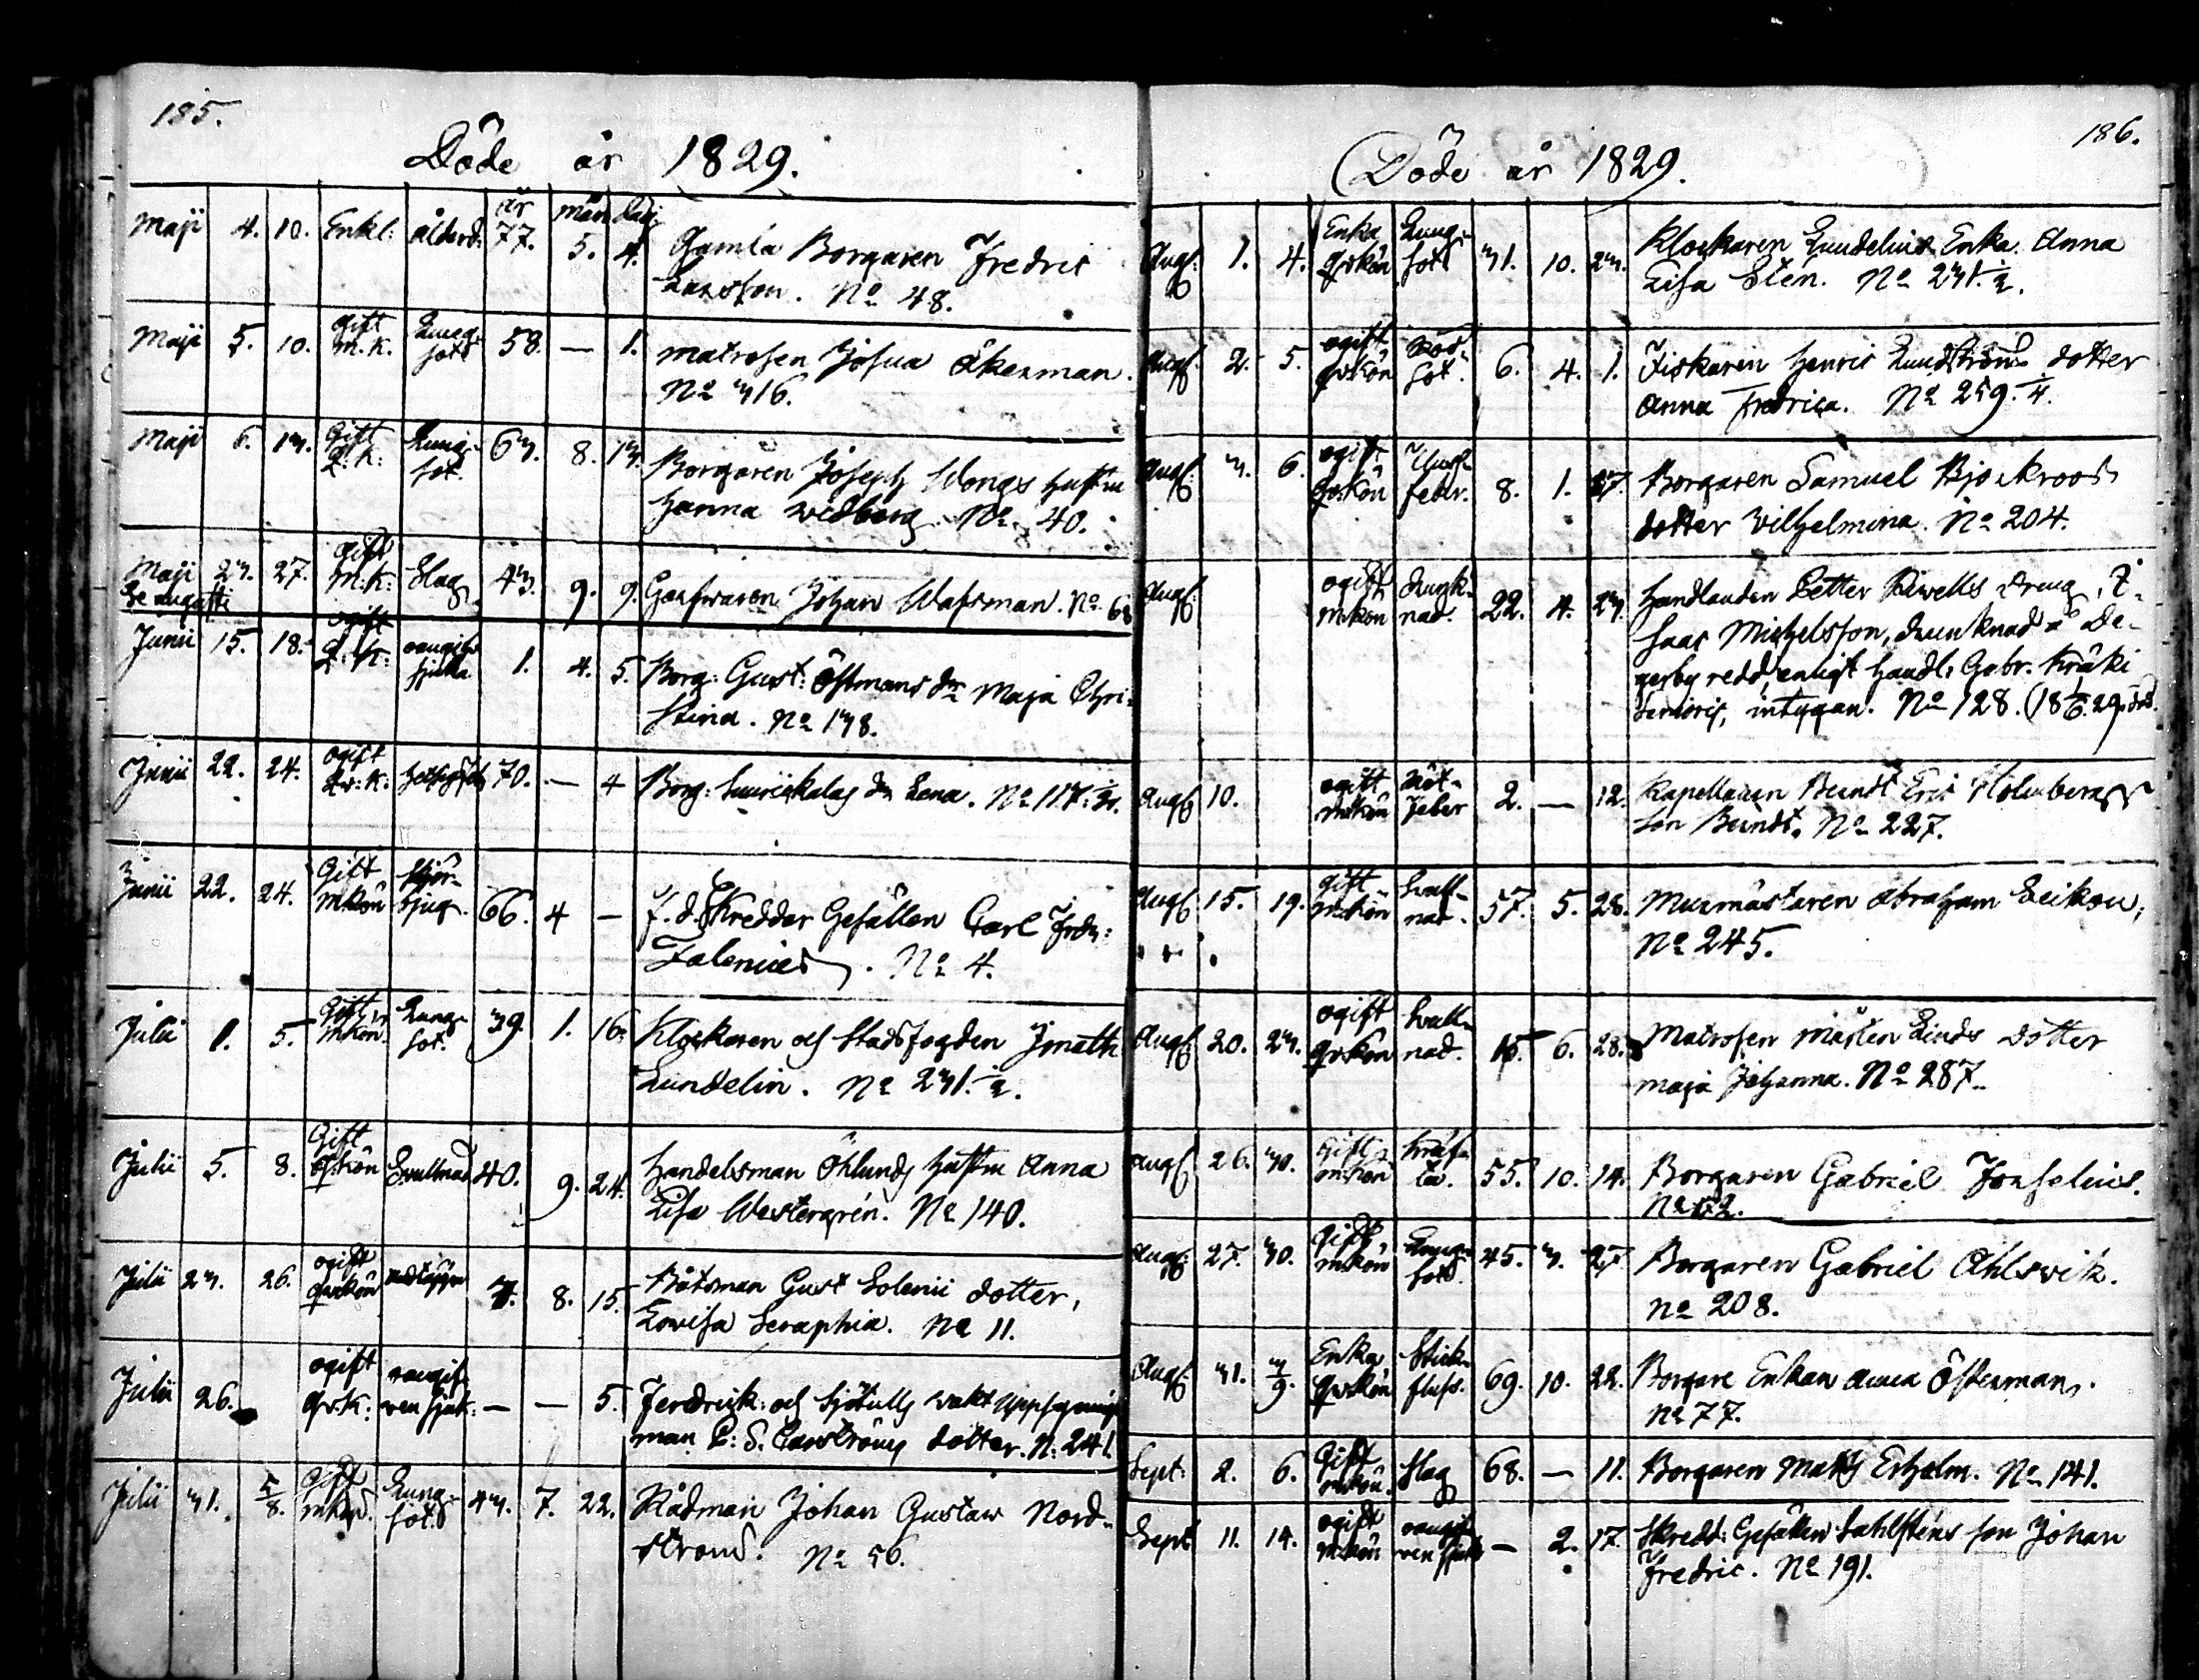 185.
Döde år 1829.
år mån. dag.
Maji 4. 10. Enkl: ålderd. 77. 5. 4. Gamla Borgaren Fredric
Larsson. No 48.
Maji 5. 10. gift m.k. Lungsot 58. — 1. Matrosen Josua Åkerman.
No 316.
Maji 6. 13. Gift Q: K: Lungsot. 63. 8. 13. Borgaren Joseph Wongs hustru
Hanna Wedberg. No 40.
Maji 23. 27. gift m:k: Slag 43. 9. 9. Garfwaren Johan Wassman. No 68
Se Augusti
Junii 15. 18. ogift Q: K: oangifv. sjukd. 1. 4. 5. Borg: Gust: Östmans dr Maja Chri-
stina. No 138.
Junii 22. 24. ogift Qv: K. 70. — 4 Borg: dr Lena. No 117.
Junii 22. 24. Gift mkön Skörbjug. 66. 4 — f.d. Skredder Gesällen Carl Fredr:
Falenius. No 4.
Julii 1. 5. Gift mkön. Lungsot. 39. 1. 16. Klockaren och Stadsfogden Jonath:
Lundelin. No 231. ½.
Julii 5. 8. Gift qvkön Svullnad 40. 9. 24. Handelsman Öhlunds hustru Anna
Lisa Westergrén. No 140.
Julii 23. 26. ogift qvkön 7. 8. 15. Båtsman Gust Solenii dotter,
Lovisa Seraphia. No 11.
Julii 26. ogift qv.k: oangifven sjuk: — — 5. och Sjötulls vakt
man C: S. dotter. N: 241.
Julii 31. 5/8. Gift mkön. Lungsot. 43. 7. 22. Rådman Johan Gustaw Nord-
ström. No 56.
186.
Döde år 1829.
Aug: 1. 4. Enka qvkön Lungsot 31. 10. 23. Klockaren Lundelins Enka Anna
Lisa Sten. No 231. ½.
Aug: 2. 5. ogift qvkön Rödsot. 6. 4. 1. Fiskaren Henric Lundströms dotter
Anna Fredrica. No 259.
Aug: 3. 6. ogift qvkön febr. 8. 1. 27. Borgaren Samuel Björkroos
dotter Vilhelmina. No 204.
Aug: ogift mkön drunknad. 22. 4. 23. Handlanden Petter Kiwells dreng, I-
saac Michelsson, drunknad å De-
gerby redd, enligt Handl: Gabr. Kråki
Senioris, intygan. No 128.
Aug: 10. ogift mkön Rötfeber 2. — 12. Kapellanen Berndt Eric Holmbergs
son Berndt. No 227.
Aug: 15. 19. gift mkön Svullnad. 57. 5. 28. Murmästaren Abraham Erikson,
No 245.
Aug: 20. 23. ogift qvkön Svullnad. 15. 6. 28. Matrosen Mårten Linds dotter
Maja Johanna. No 287.
Aug: 26. 30. gift mkön Kräfta. 55. 10. 14. Borgaren Gabriel Forselius.
No 62.
Aug: 27. 30. gift, mkön Lungsot. 45. 3. 27. Borgaren Gabriel Ahlsvik.
No 208.
Aug: 31. 3/9. Enka qvkön Stickfluss. 69. 10. 22. Borgare Enkan Anna Österman.
No 77.
Sept: 2. 6. Gift mkön. Slag 68. — 11. Borgaren Matts Erholm. No 141.
Sept: 11. 14. ogift mkön oangifven sjukd — 2. 17. Skredd: Gesällen Dahlsténs son Johan
Fredric. No 191.